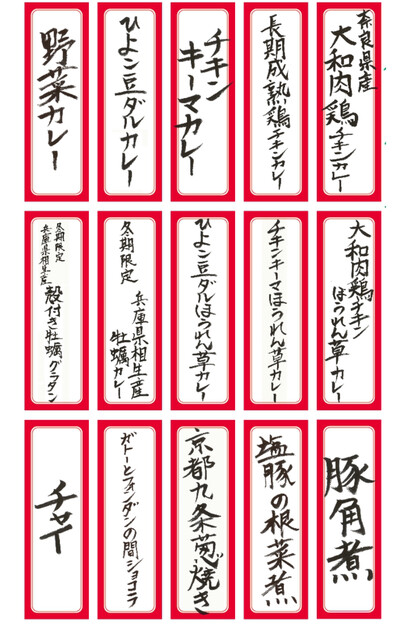 奈良県産
大和肉鶏チキンカレー
長期成熟鶏チキンカレー
チキン
キーマカレー
ひよこ豆ダルカレー
野菜カレー
大和肉鶏チキン
ほうれん草カレー
チキンキーマほうれん草カレー
ひよこ豆ダルほうれん草カレー
冬期限定
兵庫県相生産
牡蠣カレー
冬期限定
兵庫県相生産
殻付き牡蠣グラタン
豚角煮
塩豚の根菜煮
京都九条葱焼き
ガトーとフォンダンの間ショコラ
チャイ